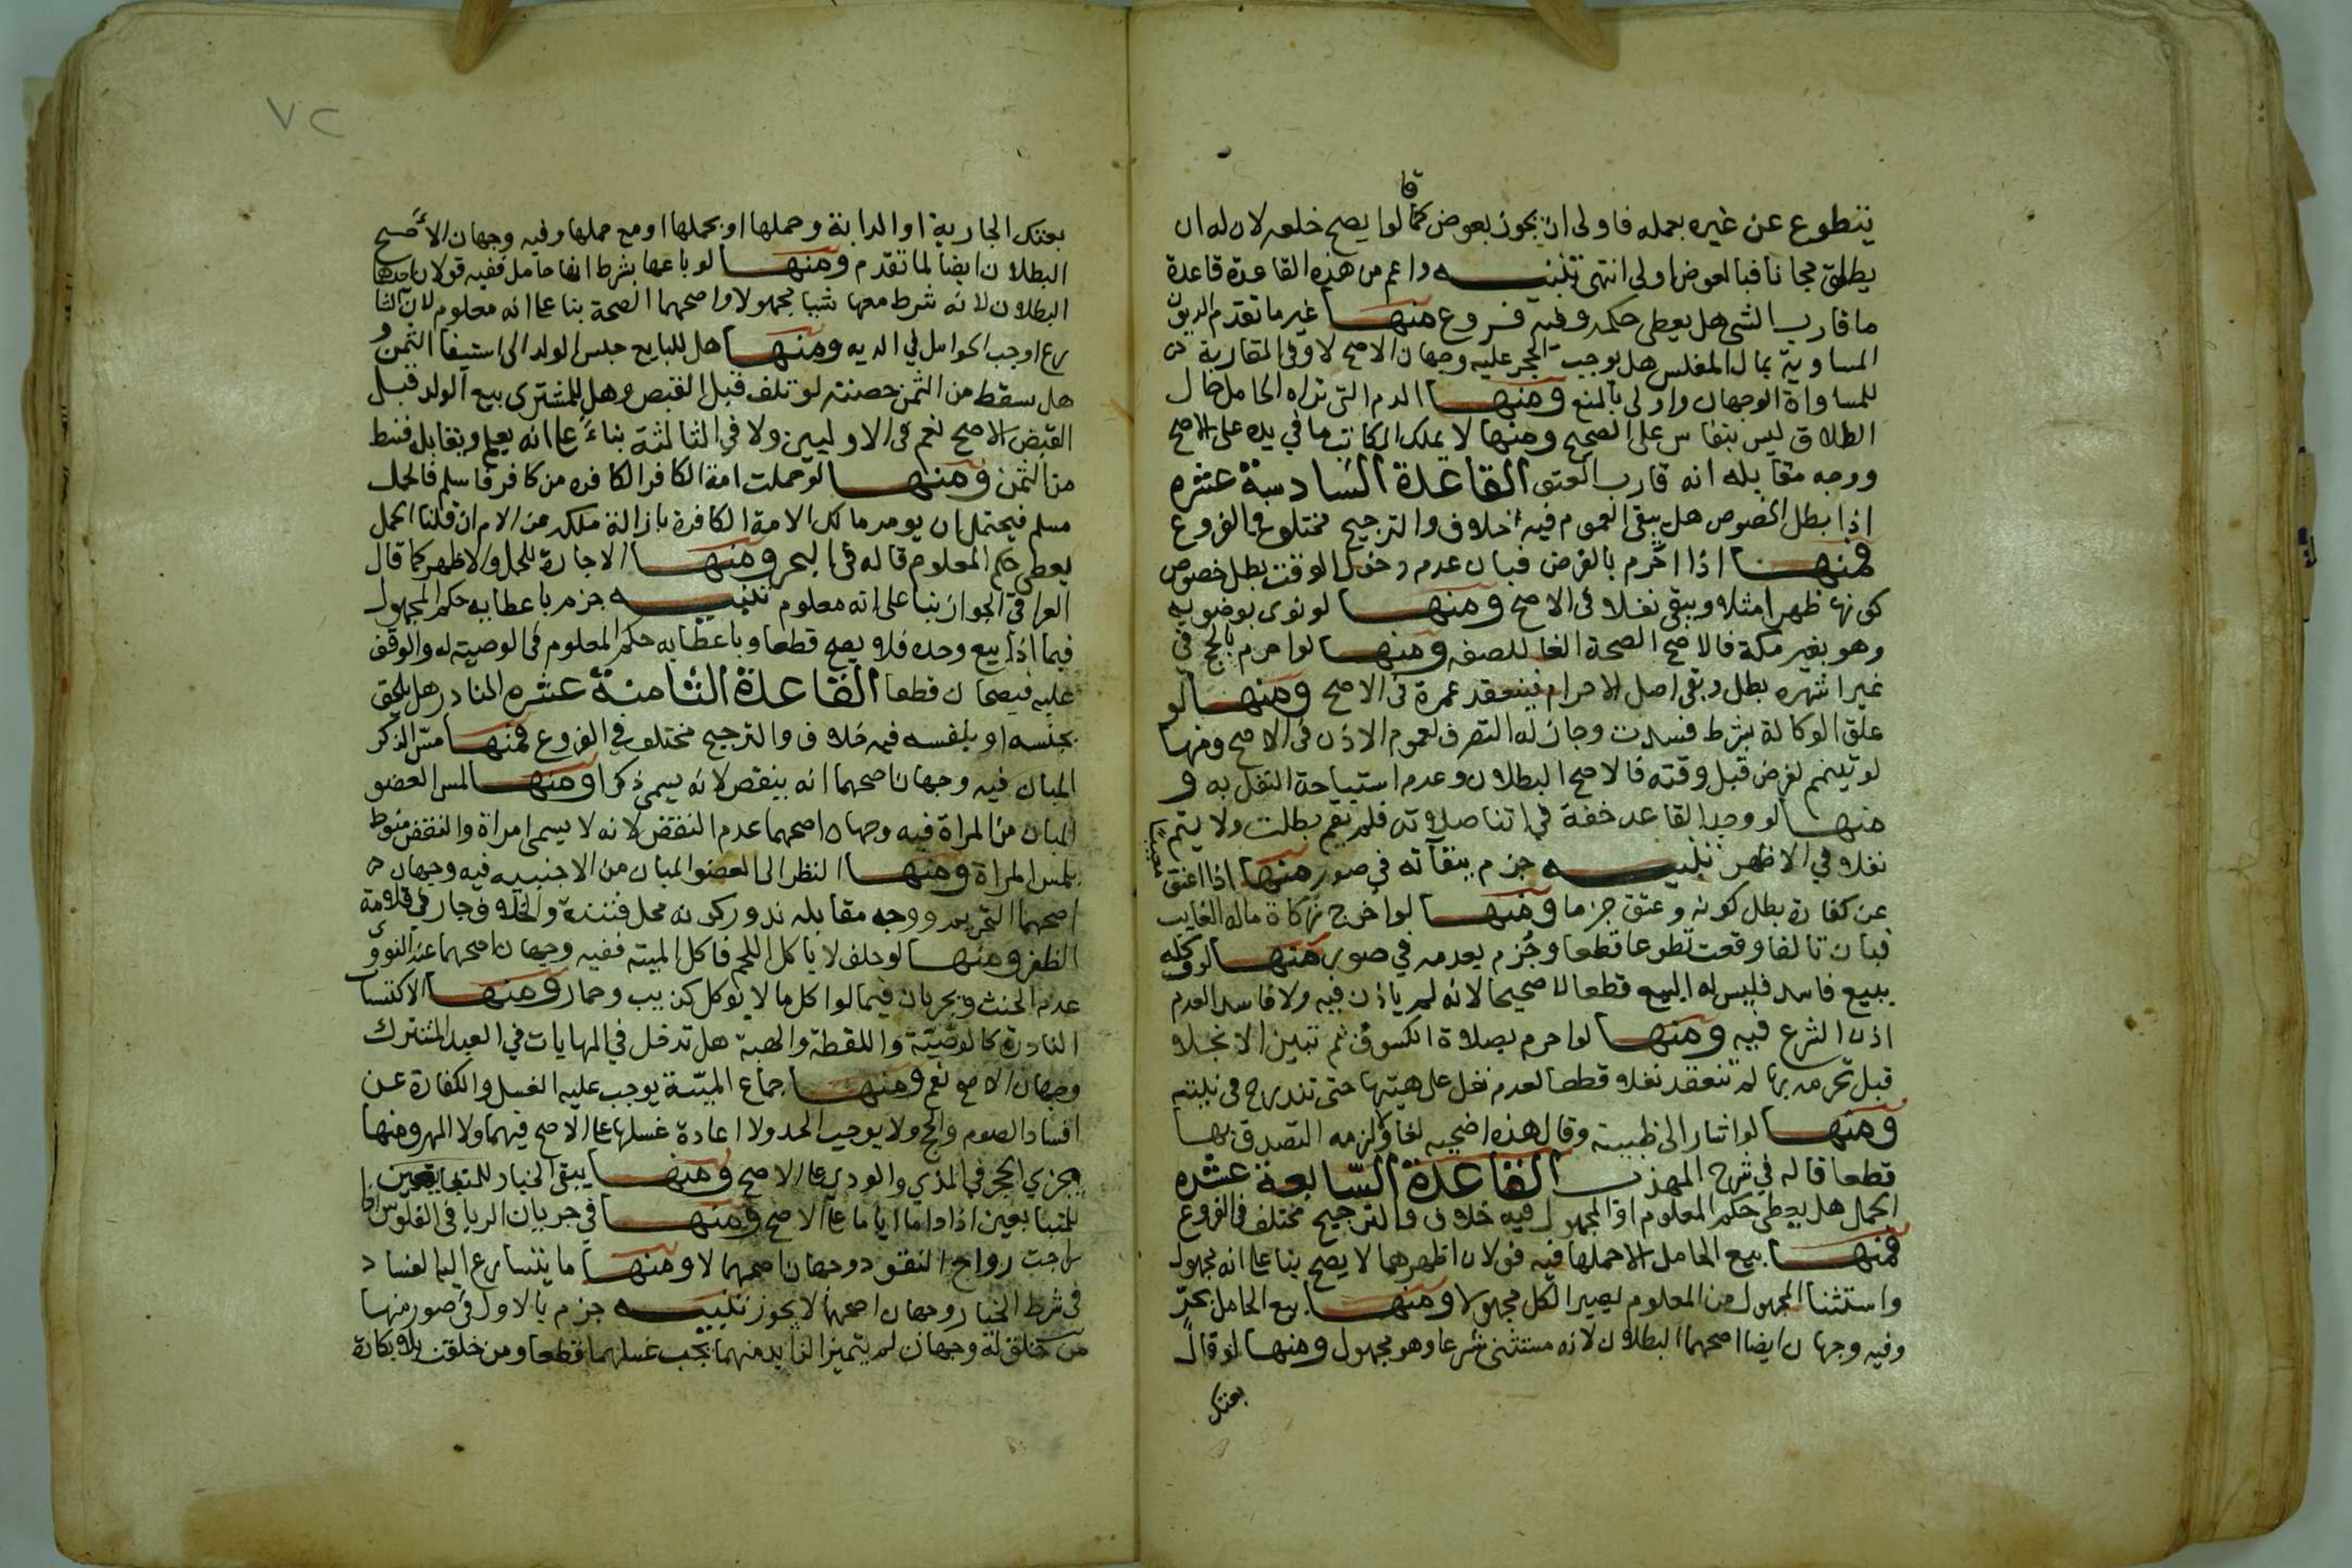 قا
يتطوع عن غيره بعمله فاولى ان يجوز بعوض كما لوا يصح خلعه لان له ان
يطلق مجانا فبالعوض اولى انتهى تنبيه واعم من هذه القاعدة قاعدة
ما قارب الشى هل يعطى حكمه وفيه فروع منها غير ما تقدم الديون
المساوية بمال المفلس هل يوجب الحجر عليه وجهان الاصح لا وفى المقاربة
للمساواة الوجهان واولى بالمنع ومنها الدم التى تراه الحامل حال
الطلاق ليس بنفاس على الصحيح ومنها لا يملك المكاتب ما في يده على الاصح
ووجه مقابله انه قارب العتق القاعدة السادسة عشره
اذا بطل الخصوص هل يبقى العموم فيه خلاف والترجيح مختلف في الفروع
فمنها اذا احرم بالفرض فبان عدم دخول الوقت بطل خصوص
كونها ظهرا مثلا ويبقى نفلا فى الاصح ومنها لو نوى بوضويه
وهو بغير مكة فالاصح الصحة الغا للصفه ومنها لو احرم بالحج في
غير اشهره بطل وبقى اصل الاحرام فينعقد عمرة فى الاصح ومنها لو
علق الوكالة بشرط فسدت وجاز له التصرف لعموم الاذن فى الاصح ومنها
لو تيمم لفرض قبل وقته فالاصح البطلان وعدم استباحة النفل به و
منها لو وجد القاعد خفة في اثنا صلاته فلم يقم بطلت ولا يتم
نفلا في الاظهر تنبيه جزم ببقآئه فى صور منها اذا اعتق معيبا
عن كفارة بطل كونه وعتق جزما ومنها لو اخرج زكاة ماله الغايب
فبان تالفا وقعت تطوعا قطعا وجزم بعدمه في صور منها لو وكله
ببيع فاسد فليس له البيع قطعا لا صحيحا لانه لم ياذن فيه ولا فاسد العدم
اذن الشرع فيه ومنها لو احرم بصلاة الكسوف ثم تبين الانجلا
قبل تحرمه بها لم تنعقد نفلا قطعا لعدم نفل على هيئتها حتى تندرج فى نيته
ومنها لو اشار الى ظبيه وقال هذه اضحيه لغا ولا يلزمه التصدق بها
قطعا قاله في شرح المهذب القاعدة السابعة عشره
الحمل هل يعطى حكم المعلوم او المجهول فيه خلاف والترجيح مختلف فى الفروع
فمنها بيع الحامل الا حملها فيه قولان اظهرهما لا يصح بنا على انه مجهول
واستثنا المجهول من المعلوم يصير الكل مجهولا ومنها بيع الحامل بحرّ
وفيه وجهان ايضا اصحهما البطلان لانه مستثنى شرعا وهو مجهول ومنها لو قال
بعتك
٧٢
بعتك الجارية او الدابة وحملها او بحملها او مع حملها وفيه وجهان الاصح
البطلان ايضا لما تقدم ومنها لو باعها بشرط انها حامل ففيه قولان احدهما
البطلان لانه شرط معها شيا مجهولا واصحهما الصحة بنا على انه معلوم لان الشا
رع اوجب الحوامل في الديه ومنها هل للبايع حبس الولد الى استيفا الثمن و
هل يسقط من الثمن حصته لو تلف قبل القبض وهل للمشترى بيع الولد قبل
القبض الاصح نعم فى الاوليين ولا في الثالثة بناءً على انه يعلم ويقابل قسط
من الثمن ومنها لو حملت امة الكافر الكافره من كافر فاسلم فالحمل
مسلم فيحتمل ان يومر مالك الامة الكافرة بازالة ملكه عن الام ان قلنا الحمل
يعطى حكم المعلوم قاله فى البحر ومنها الاجارة للحمل والاظهر كما قال
العراقى الجواز بنا على انه معلوم تنبيه جزم باعطايه حكم المجهول
فيما اذا بيع وحده فلا يصح قطعا وباعطايه حكم المعلوم فى الوصيته له والوقف
عليه فيصحان قطعا القاعدة الثامنة عشره النادر هل يلحق
بجنسه او بنفسه فيه خلاف والترجيح مختلف في الفروع فمنها مس الذكر
المبان فيه وجهان اصحهما انه ينقض لانه يسمى ذكرا ومنها لمس العضو
المبان من المراة فيه وجهان اصحهما عدم النقض لانه لا يسمى امراة والنقض منوط
بلمس المراة ومنها النظر الى العضو المبان من الاجنبيه فيه وجهان
اصحهما التحريم ووجه مقابله ندور كونه محل فتنة والخلاف جار في قلامة
الظفر ومنها لو حلف لا ياكل اللحم فاكل الميته ففيه وجهان اصحهما عند النووى
عدم الحنث ويجريان فيما لو اكل ما لا يوكل كذيب وحمار ومنها الاكتساب
النادرة كالوصيّة واللقطة والهبة هل تدخل في المهايات في العبد المشترك
وجهان الاصح نعم ومنها جماع الميّتة يوجب عليه الغسل والكفارة عن
افساد الصوم والحج ولا يوجب الحد ولا اعادة غسلها على الاصح فيهما ولا المهر ومنها
يجزي الحجر في المذي والودي على الاصح ومنها يبقى الخيار للمتبايعين
للمتبايعين اذا داما اياما على الاصح ومنها في جريان الربا في الفلوس اذا
راجت رواج النقود وجهان اصحهما لا ومنها ما يتسارع اليه الفساد
فى شرط الخيار وجهان اصحهما لا يجوز تنبيه جزم بالاول فى صور منها
من خلق له وجهان لم يتميز الزايد منهما يجب غسلهما قطعا ومن خلقت بلا بكارة